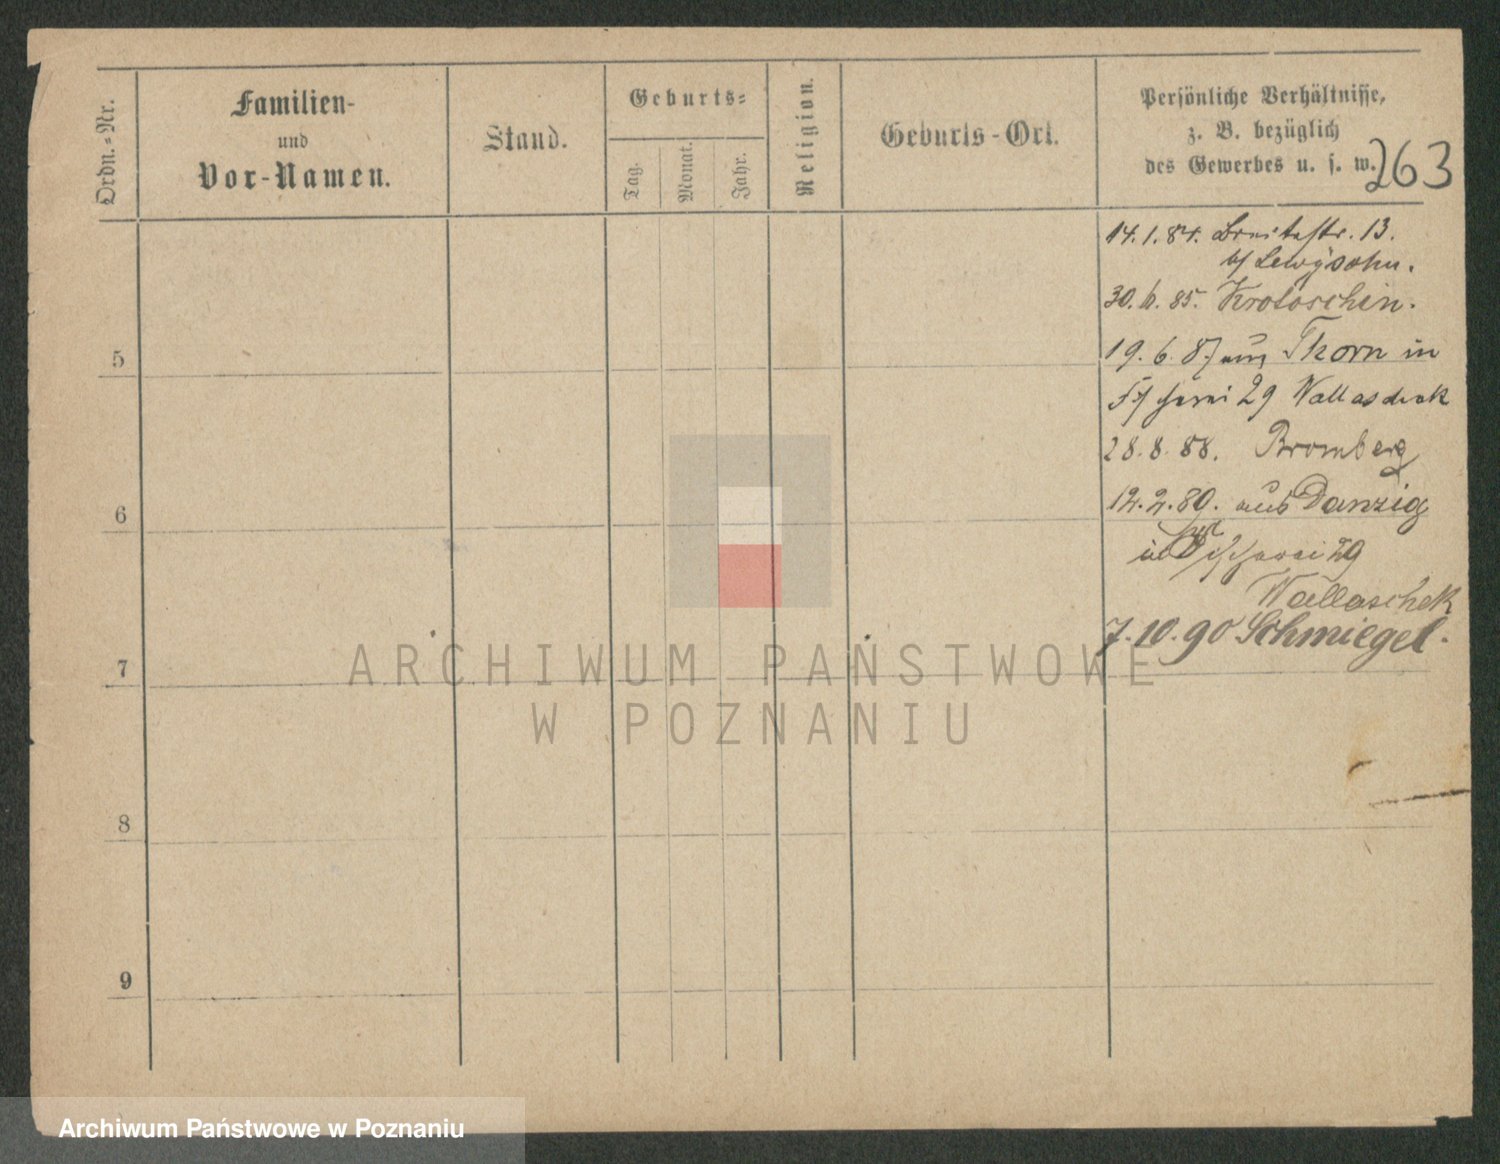 Ordn.-Nr.
Familien-
und
Vor-Namen.
Stand.
Geburts-
Tag.
Monat.
Jahr.
Religion.
Geburts-Ort.
Persönliche Verhältnisse,
z. B. bezüglich
des Gewerbes u. s. w.
263
14.1.84. Breitestr. 13.
b/ Lewysohn.
30. 85. Krotoschin.
5
19.6.87 aus Thorn in
29 Wallaschek
28.8.88. Bromberg
6
12.2.89. aus Danzig
in 29
Wallaschek
7.10.90 Schmiegel.
7
8
9
ARCHIWUM PAŃSTWOWE
W POZNANIU
Archiwum Państwowe w Poznaniu